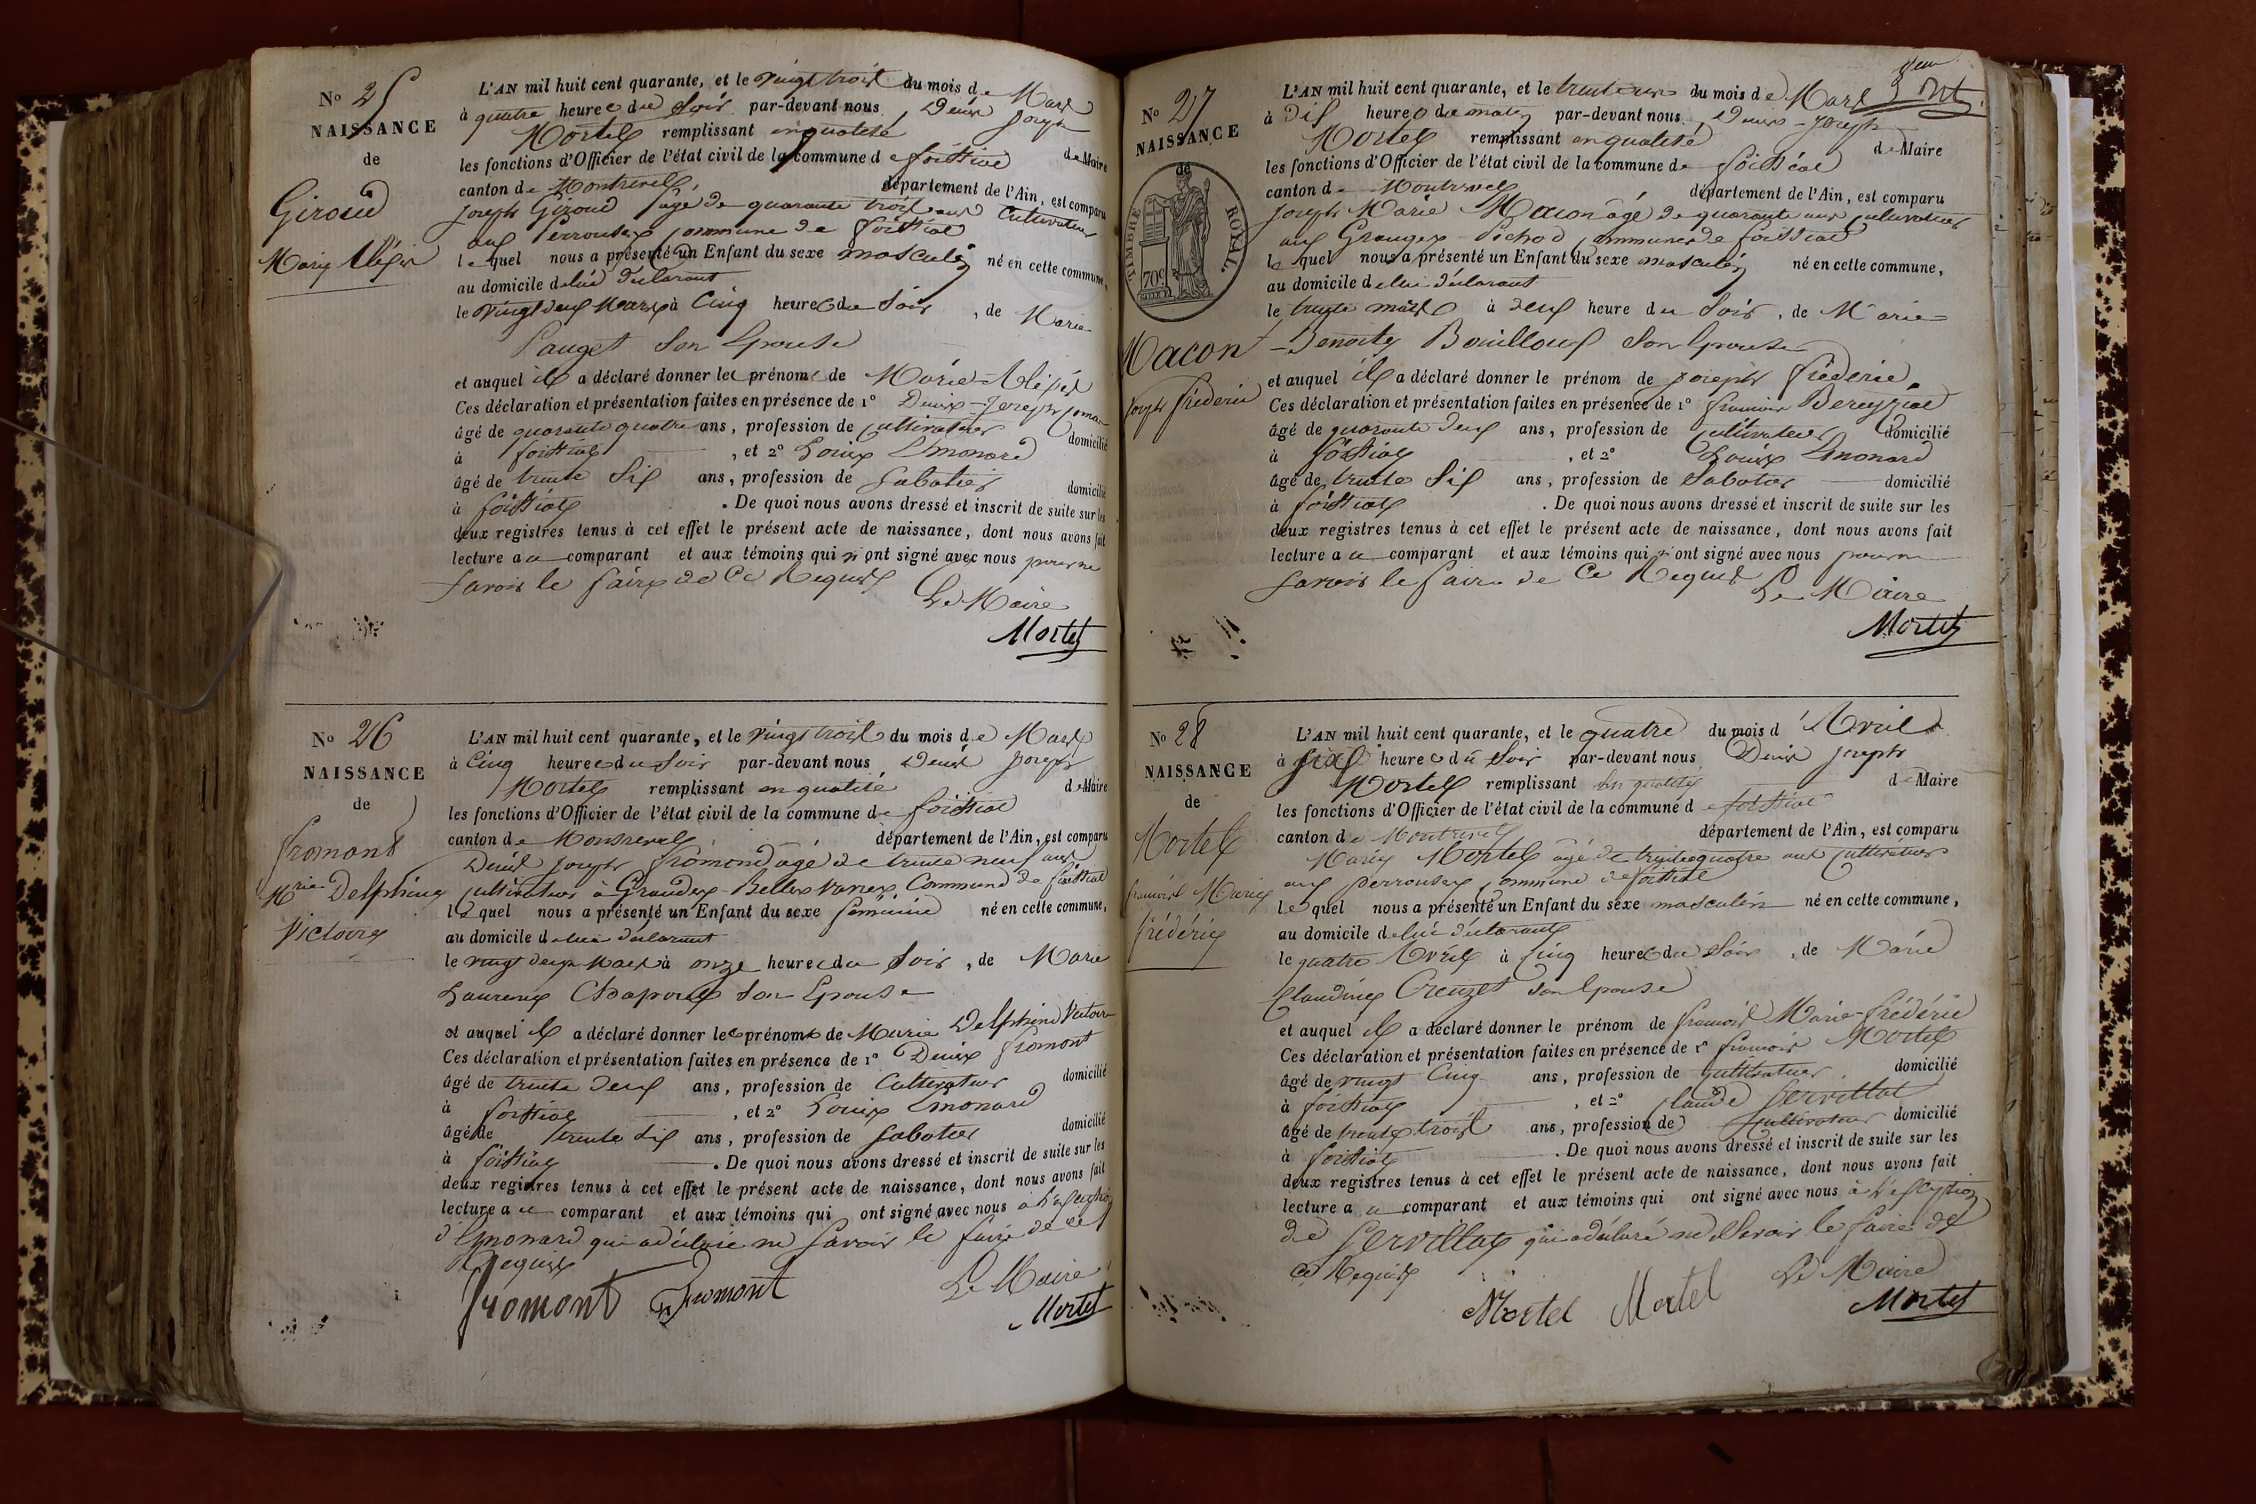 No 25
NAISSANCE
de
Giroud
Marie Alexis
L'AN mil huit cent quarante, et le vingt trois du mois de Mars
à quatre heure du Soir par-devant nous Denis Joseph
Mortel remplissant en qualité de Maire
les fonctions d'Officier de l'état civil de la commune de foissiat
canton de Montrevel département de l'Ain, est comparu
Joseph Giroud âgé de quarante trois ans Cultivateur
aux perrouses commune de foissiat
lequel nous a présenté un Enfant du sexe masculin né en cette commune,
au domicile de lui déclarant
le vingt deux Mars à Cinq heure du Soir, de Marie
Pauget Son Epouse
et auquel il a déclaré donner les prénoms de Marie
Ces déclaration et présentation faites en présence de 1° Denis-Joseph
âgé de quarante quatre ans, profession de cultivateur domicilié
à foissiat, et 2° Louis Emonard
âgé de trente Six ans, profession de Sabotier domicilié
à foissiat. De quoi nous avons dressé et inscrit de suite sur les
deux registres tenus à cet effet le présent acte de naissance, dont nous avons fait
lecture au comparant et aux témoins qui n'ont signé avec nous pour ne
Savoir le faire de Ce Requis
Le Maire
Mortel
No 26
NAISSANCE
de
fromont
Mrie Delphine
Victoire
L'AN mil huit cent quarante, et le vingt trois du mois de Mars
à Cinq heure du Soir par-devant nous Denis Joseph
Mortel remplissant en qualité de Maire
les fonctions d'Officier de l'état civil de la commune de foissiat
canton de Montrevel département de l'Ain, est comparu
Denis Joseph fromond âgé de trente neuf ans
cultivateur à Grandes Belles Vavres Commune de foissiat
lequel nous a présenté un Enfant du sexe féminine né en cette commune,
au domicile de lui déclarant
le vingt deux Mars à onze heure du Soir, de Marie
Laurence Chapoux Son Epouse
et auquel il a déclaré donner les prénoms de Marie Delphine Victoire
Ces déclaration et présentation faites en présence de 1° Denis fromont
âgé de trente deux ans, profession de Cultivateur domicilié
à foissiat, et 2° Louis Emonard
âgé de trente Six ans, profession de Sabotier domicilié
à foissiat. De quoi nous avons dressé et inscrit de suite sur les
deux registres tenus à cet effet le présent acte de naissance, dont nous avons fait
lecture au comparant et aux témoins qui ont signé avec nous à l'exception
d'Emonard qui a déclaré ne Savoir le faire de ce
Requis
fromont fromont
Le Maire
Mortel
No 27
NAISSANCE
de
TIMBRE ROYAL
70c
Macon
Joseph frédéric
L'AN mil huit cent quarante, et le trente un du mois de Mars
à Dix heure du matin par-devant nous Denis-Joseph
Mortel remplissant en qualité de Maire
les fonctions d'Officier de l'état civil de la commune de foissiat
canton de Montrevel département de l'Ain, est comparu
Joseph Marie Macon âgé de quarante ans cultivateur
aux Granges Pichod commune de foissiat
lequel nous a présenté un Enfant du sexe masculin né en cette commune,
au domicile de lui déclarant
le trente mars à deux heure du Soir, de Marie
Benoite Bouilloux Son Epouse
et auquel il a déclaré donner le prénom de Joseph frédéric
Ces déclaration et présentation faites en présence de 1° françois Bereyziat
âgé de quarante deux ans, profession de cultivateur domicilié
à foissiat, et 2° Louis Emonard
âgé de trente Six ans, profession de Sabotier domicilié
à foissiat. De quoi nous avons dressé et inscrit de suite sur les
deux registres tenus à cet effet le présent acte de naissance, dont nous avons fait
lecture au comparant et aux témoins qui n'ont signé avec nous pour ne
Savoir le faire de Ce Requis
Le Maire
Mortel
No 28
NAISSANCE
de
Mortel
françois Marie
frédéric
L'AN mil huit cent quarante, et le quatre du mois d'Avril
à six heure du Soir par-devant nous Denis Joseph
Mortel remplissant en qualité de Maire
les fonctions d'Officier de l'état civil de la commune de foissiat
canton de Montrevel département de l'Ain, est comparu
Marie Mortel âgé de trente quatre ans cultivateur
aux perrouses commune de foissiat
lequel nous a présenté un Enfant du sexe masculin né en cette commune,
au domicile de lui déclarant
le quatre Avril à Cinq heure du Soir, de Marie
Claudine Creuzet Son Epouse
et auquel il a déclaré donner le prénom de françois Marie-frédéric
Ces déclaration et présentation faites en présence de 1° françois Mortel
âgé de vingt Cinq ans, profession de cultivateur domicilié
à foissiat, et 2° Claude Servillat
âgé de trente trois ans, profession de Cultivateur domicilié
à foissiat. De quoi nous avons dressé et inscrit de suite sur les
deux registres tenus à cet effet le présent acte de naissance, dont nous avons fait
lecture au comparant et aux témoins qui ont signé avec nous à l'exception
de Servillat qui a déclaré ne Savoir le faire de
ce Requis
Mortel Mortel
Le Maire
Mortel